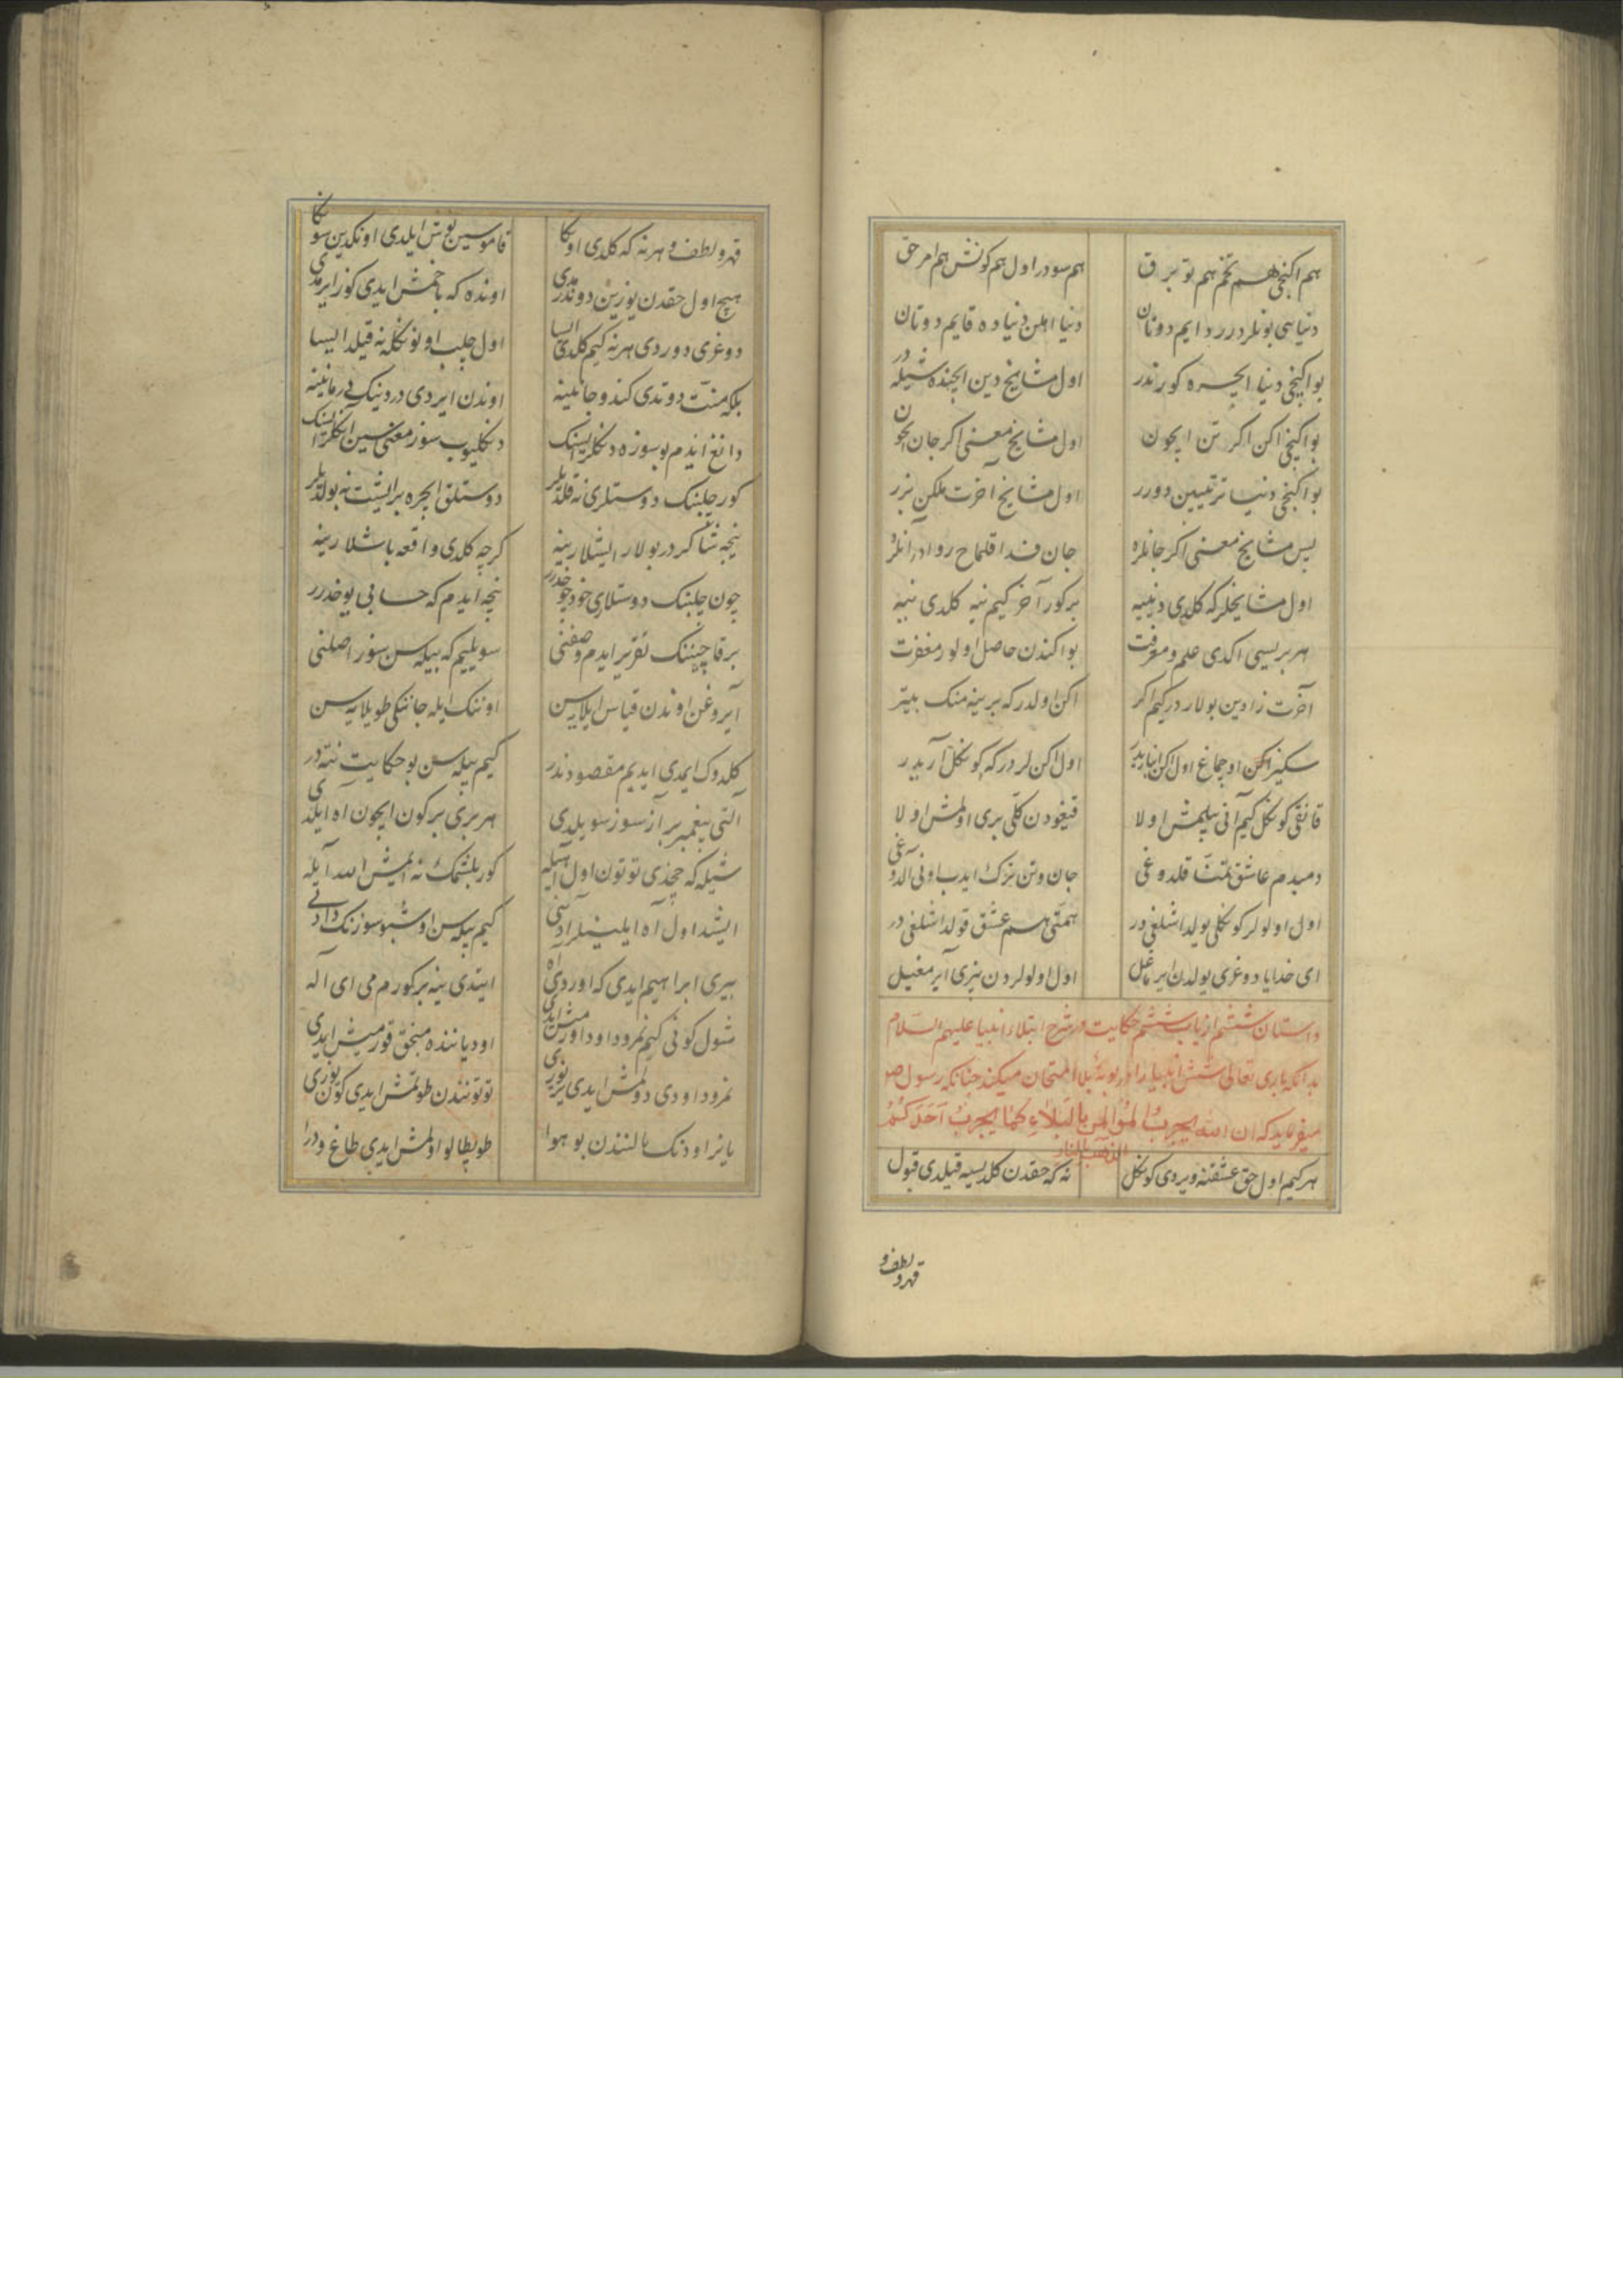 هم اکنجی هم تخم هم توبرق هم سودر اول هم کونش هم امر حق
دنیایی بونلردرر دایم دوتان دنیا اهلن دنیاده قایم دوتان
بو اکینجی دنیا ایچره کورندر اول مشایخ دین ایچنده شیله در
بو اکینجی اکن اکر تن ایچون اول مشایخ معنی اکر جان ایچون
بو اکنجی دنیا ترتیبین دورر اول مشایخ آخرت ملکن بزر
پس مشایخ معنی اکر جانلره جان فدا قلماح روادر آنلره
اول مشایخلر که کلدی دینیه بر کور آخر کیم نیه کلدی نیه
هر بریسی اکدی علم و معرفت بو اکندن حاصل اولور مغفرت
آخرت زادین بولار در کیم اکر اکن اولدر که برینه منک بیتر
سکیز اکن اوچماغ اول اکن اول اکن لر در که کونکل آریدر
قانقی کونکل کیم آنی بیلمش اولا قیغودن کلی بری اولمش اولا
دمبدم عاشق تمنا قلدوغی جان و تن ترک ایدب اونی آلدوغی
اول اولولر کونکلی یولداشلغی در همتی هم عشق قولداشلغی در
ای خدایا دوغری یولدن ایرماغل اول اولولردن بزی آیرمغیل
داستان ششم از باب ششم حکایت در شرح ابتلاء انبیا علیهم السلام
بدانکه باری تعالی شش انبیا را در بوتۀ بلا امتحان میکند چنانکه رسول ص
میفرماید که ان الله یجرب المؤمن بالبلاء کما یجرب احدکم
الذهب بالنار
هر کیم اول حق عشقنه ویردی کونکل نه که حقدن کلدیسه قیلدی قبول
قهر و لطف و
قهر و لطف و هر نه که کلدی اونکا قاموسین نوش ایلدی اونکدین سونکا
هیچ اول حقدن یوزین دوندرمدی اونده که باخمش ایدی کوز ایرمدی
دوغری دوردی هر نه کیم کلدی ایسا اول چلب اونونکله نه قیلدایسا
بلکه منت دوتدی کندو جانینه اوندن ایردی دردینک درمانینه
دانغ ایدم بو سوزه دنکلریسنک دنکلیوب سوز معنی سین انکلریسنک
کور چلبنک دوستلری نه قلدیلر دوستلق ایچره بر ایشت نه بولدیلر
نیچه شاکر در بولار ایشلارینه کرچه کلدی واقعه باشلارینه
چون چلبنک دوستلاری خود چوخدرر نیچه ایدم که حسابی یوخدرر
بر قاچیننک تقریر ایدم وصفنی سویلیم که بیله سن سوز اصلنی
آیروغن اوندن قیاس ایلایه سن اوننک ایله جاننکی طویلایه سن
کلدوک ایمدی ایدیم مقصود ندر کیم بیله سن بو حکایت نته در
آلتی پیغمبر بر آز سوز سویلدی هر بری بر کون ایچون آه ایلدی
شیله که چخدی توتون اول آهیله کور بلشمک نه ایمش الله ایله
ایشد اول آه ایلینلر آدنی کیم بیله سن اوشبو سوزنک دادنی
بیری ابراهیم ایدی که اوردی آه ایتدی ینه بر کورم می ای اله
شول کونی کیم نمرود اود اورمش ایدی اود یاننده منجنق قورمیش ایدی
نمرود اودی دولمش ایدی یر یوزی توتونندن طوتمش ایدی کون یوزی
یانر اودنک یالنندن بو هوا طوپطالو اولمش ایدی طاغ و درا